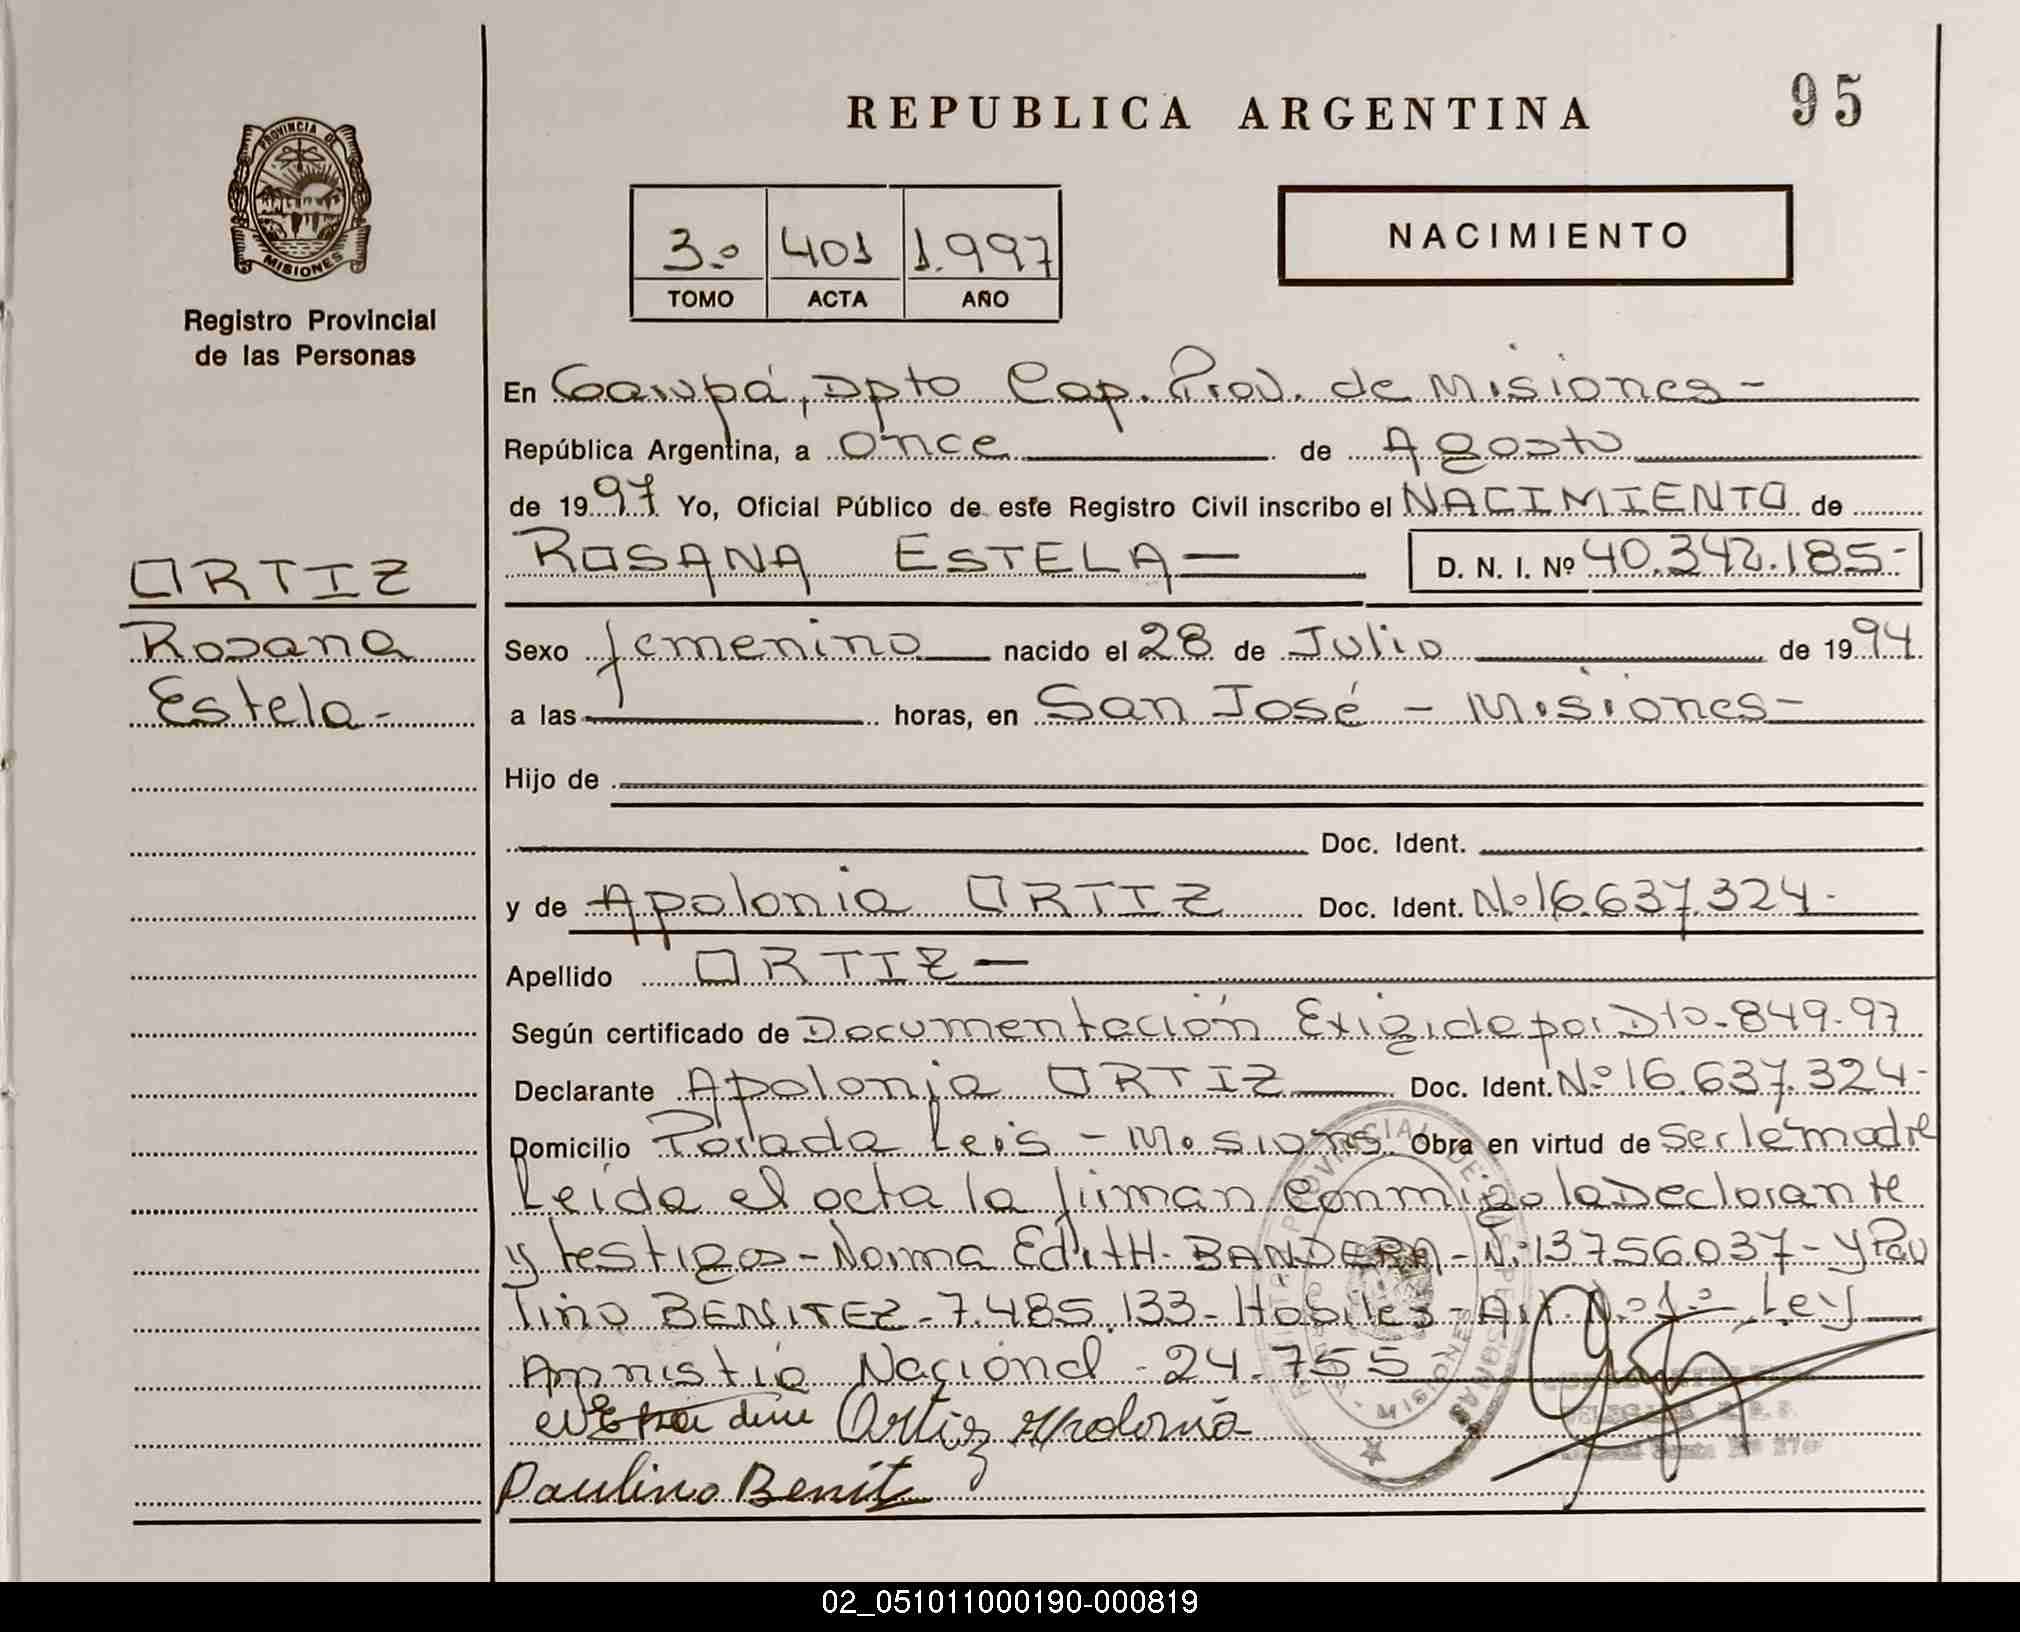 REPUBLICA ARGENTINA
95
PROVINCIA DE
MISIONES
Registro Provincial
de las Personas
3.º 401 1.997
TOMO ACTA AÑO
NACIMIENTO
En Garupá, Dpto Cap. Prov. de Misiones -
República Argentina, a once de Agosto
de 1997 Yo, Oficial Público de este Registro Civil inscribo el NACIMIENTO de
ROSANA ESTELA — D. N. I. Nº 40.342.185-
ORTIZ
Rosana
Estela -
Sexo femenino nacido el 28 de Julio de 1994
a las horas, en San José - Misiones -
Hijo de
Doc. Ident.
y de Apolonia ORTIZ Doc. Ident. Nº 16.637.324-
Apellido ORTIZ —
Según certificado de Documentación Exigida por Dto-849-97
Declarante Apolonia ORTIZ Doc. Ident. Nº 16.637.324-
Domicilio Parada Leis - Misiones Obra en virtud de ser la madre
Leída el acta la firman conmigo la Declarante
y testigos - Norma Edith BANDERA - Nº 13.756.037 - y Pau
lino BENITEZ - 7.485.133 - Hábiles - Art. Nº 1º Ley
Amnistía Nacional - 24.755 -
Ortiz Apolonia
Paulino Benit
REGISTRO PROVINCIAL DE LAS PERSONAS
MISIONES
02_051011000190-000819